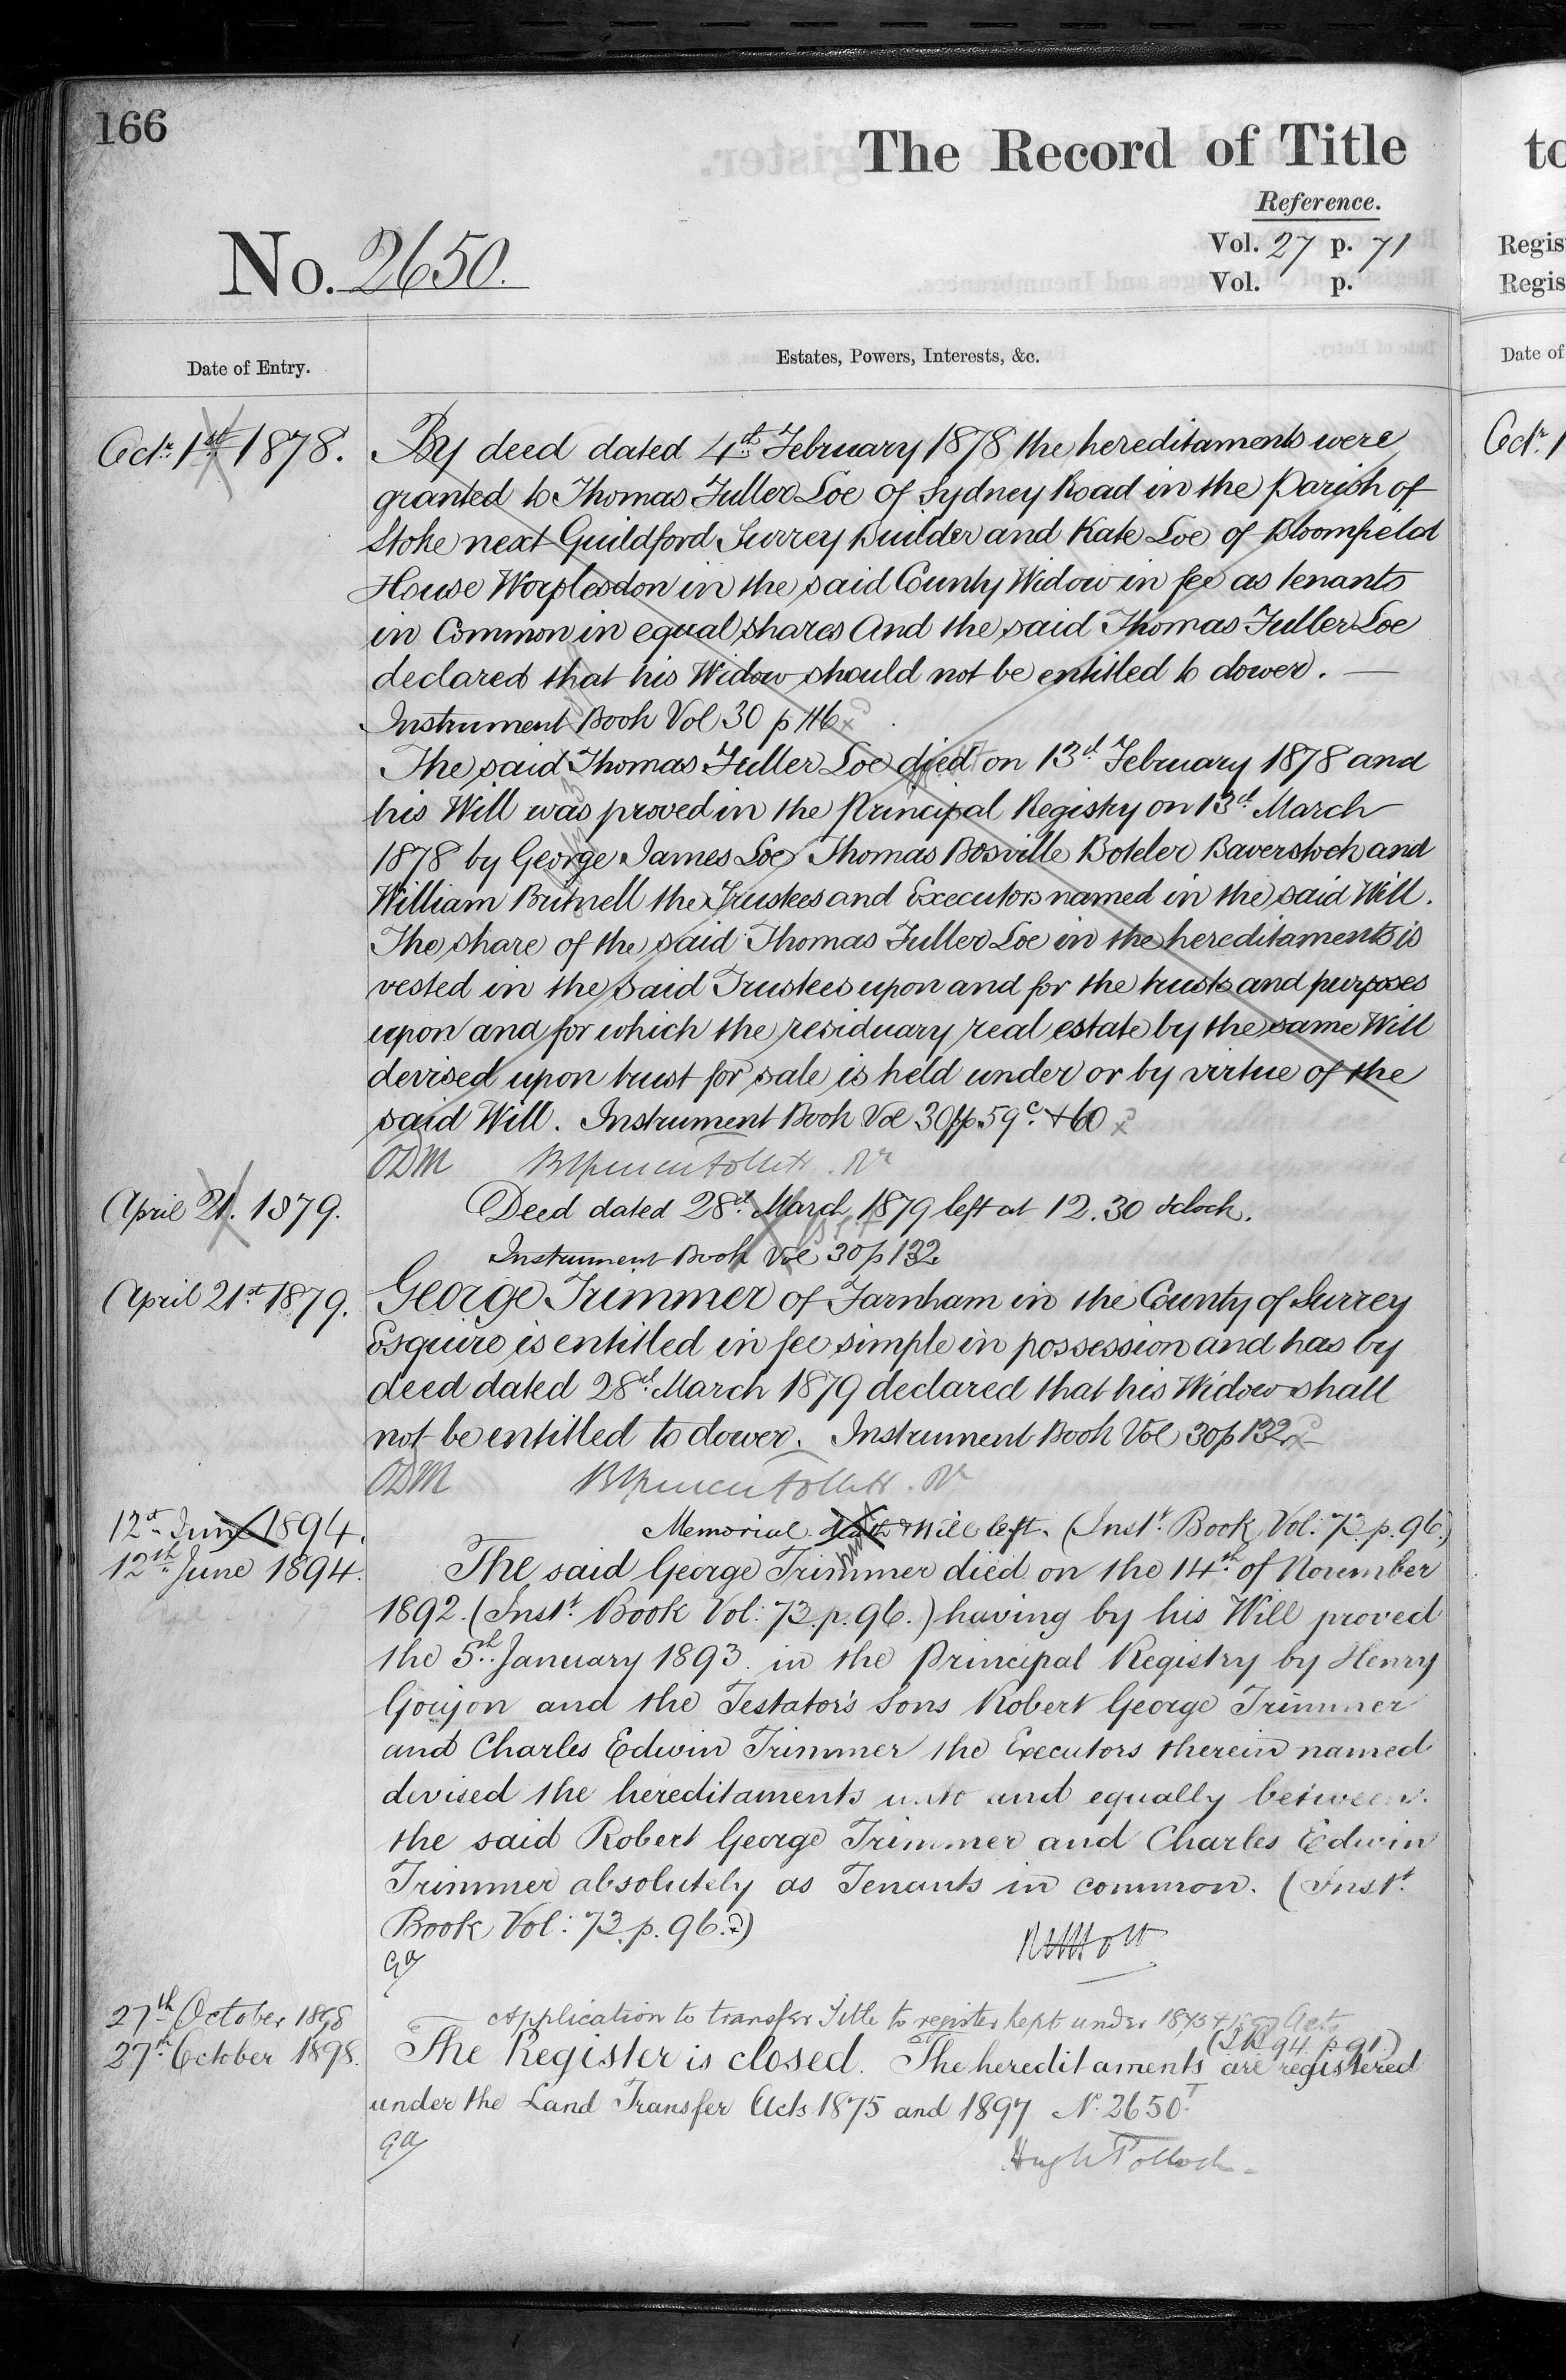 166
The Record of Title
Reference.
No. 2650.
Vol. 27 p. 71
Vol. p.
Date of Entry.
Estates, Powers, Interests, &c.
Octr. 1st 1878. By deed dated 4th February 1878 the hereditaments were
granted to Thomas Fuller Loe of Sydney Road in the Parish of
Stoke next Guildford Surrey Builder and Kate Loe of Bloomfield
House Worplesdon in the said County Widow in fee as tenants
in Common in equal shares And the said Thomas Fuller Loe
declared that his Widow should not be entitled to dower. —
Instrument Book Vol 30 p 116
The said Thomas Fuller Loe died on 13th February 1878 and
his Will was proved in the Principal Registry on 13th March
1878 by George James Loe Thomas Bosville Boteler Baverstock and
William Brutnell the Trustees and Executors named in the said Will.
The share of the said Thomas Fuller Loe in the hereditaments is
vested in the said Trustees upon and for the trusts and purposes
upon and for which the residuary real estate by the same Will
devised upon trust for sale is held under or by virtue of the
said Will. Instrument Book Vol 30 pp. 59c. & 60
ODM
April 21. 1879. Deed dated 28th March 1879 left at 12.30 oclock.
Instrument Book Vol 30 p 132
April 21st 1879. George Trimmer of Farnham in the County of Surrey
Esquire is entitled in fee simple in possession and has by
deed dated 28th March 1879 declared that his Widow shall
not be entitled to dower. Instrument Book Vol 30 p 132
ODM
12th June 1894. Memorial Death & Will left. (Inst. Book Vol: 73. p. 96.)
12th June 1894. The said George Trimmer died on the 14th of November
1892. (Inst. Book Vol: 73. p. 96.) having by his Will proved
the 5th January 1893 in the Principal Registry by Henry
Goujon and the Testator's Sons Robert George Trimmer
and Charles Edwin Trimmer the Executors therein named
devised the hereditaments unto and equally between
the said Robert George Trimmer and Charles Edwin
Trimmer absolutely as Tenants in common. (Inst.
Book Vol: 73. p. 96.)
RHHolt
Ga
27th October 1898 Application to transfer Title to register kept under 1875 & 1897 Acts
(I.B. 94. p 91.)
27th October 1898. The Register is closed. The hereditaments are registered
under the Land Transfer Acts 1875 and 1897 No. 2650T
Ga
Hugh Pollock
to
Regis
Regis
Date of
Octr. 1